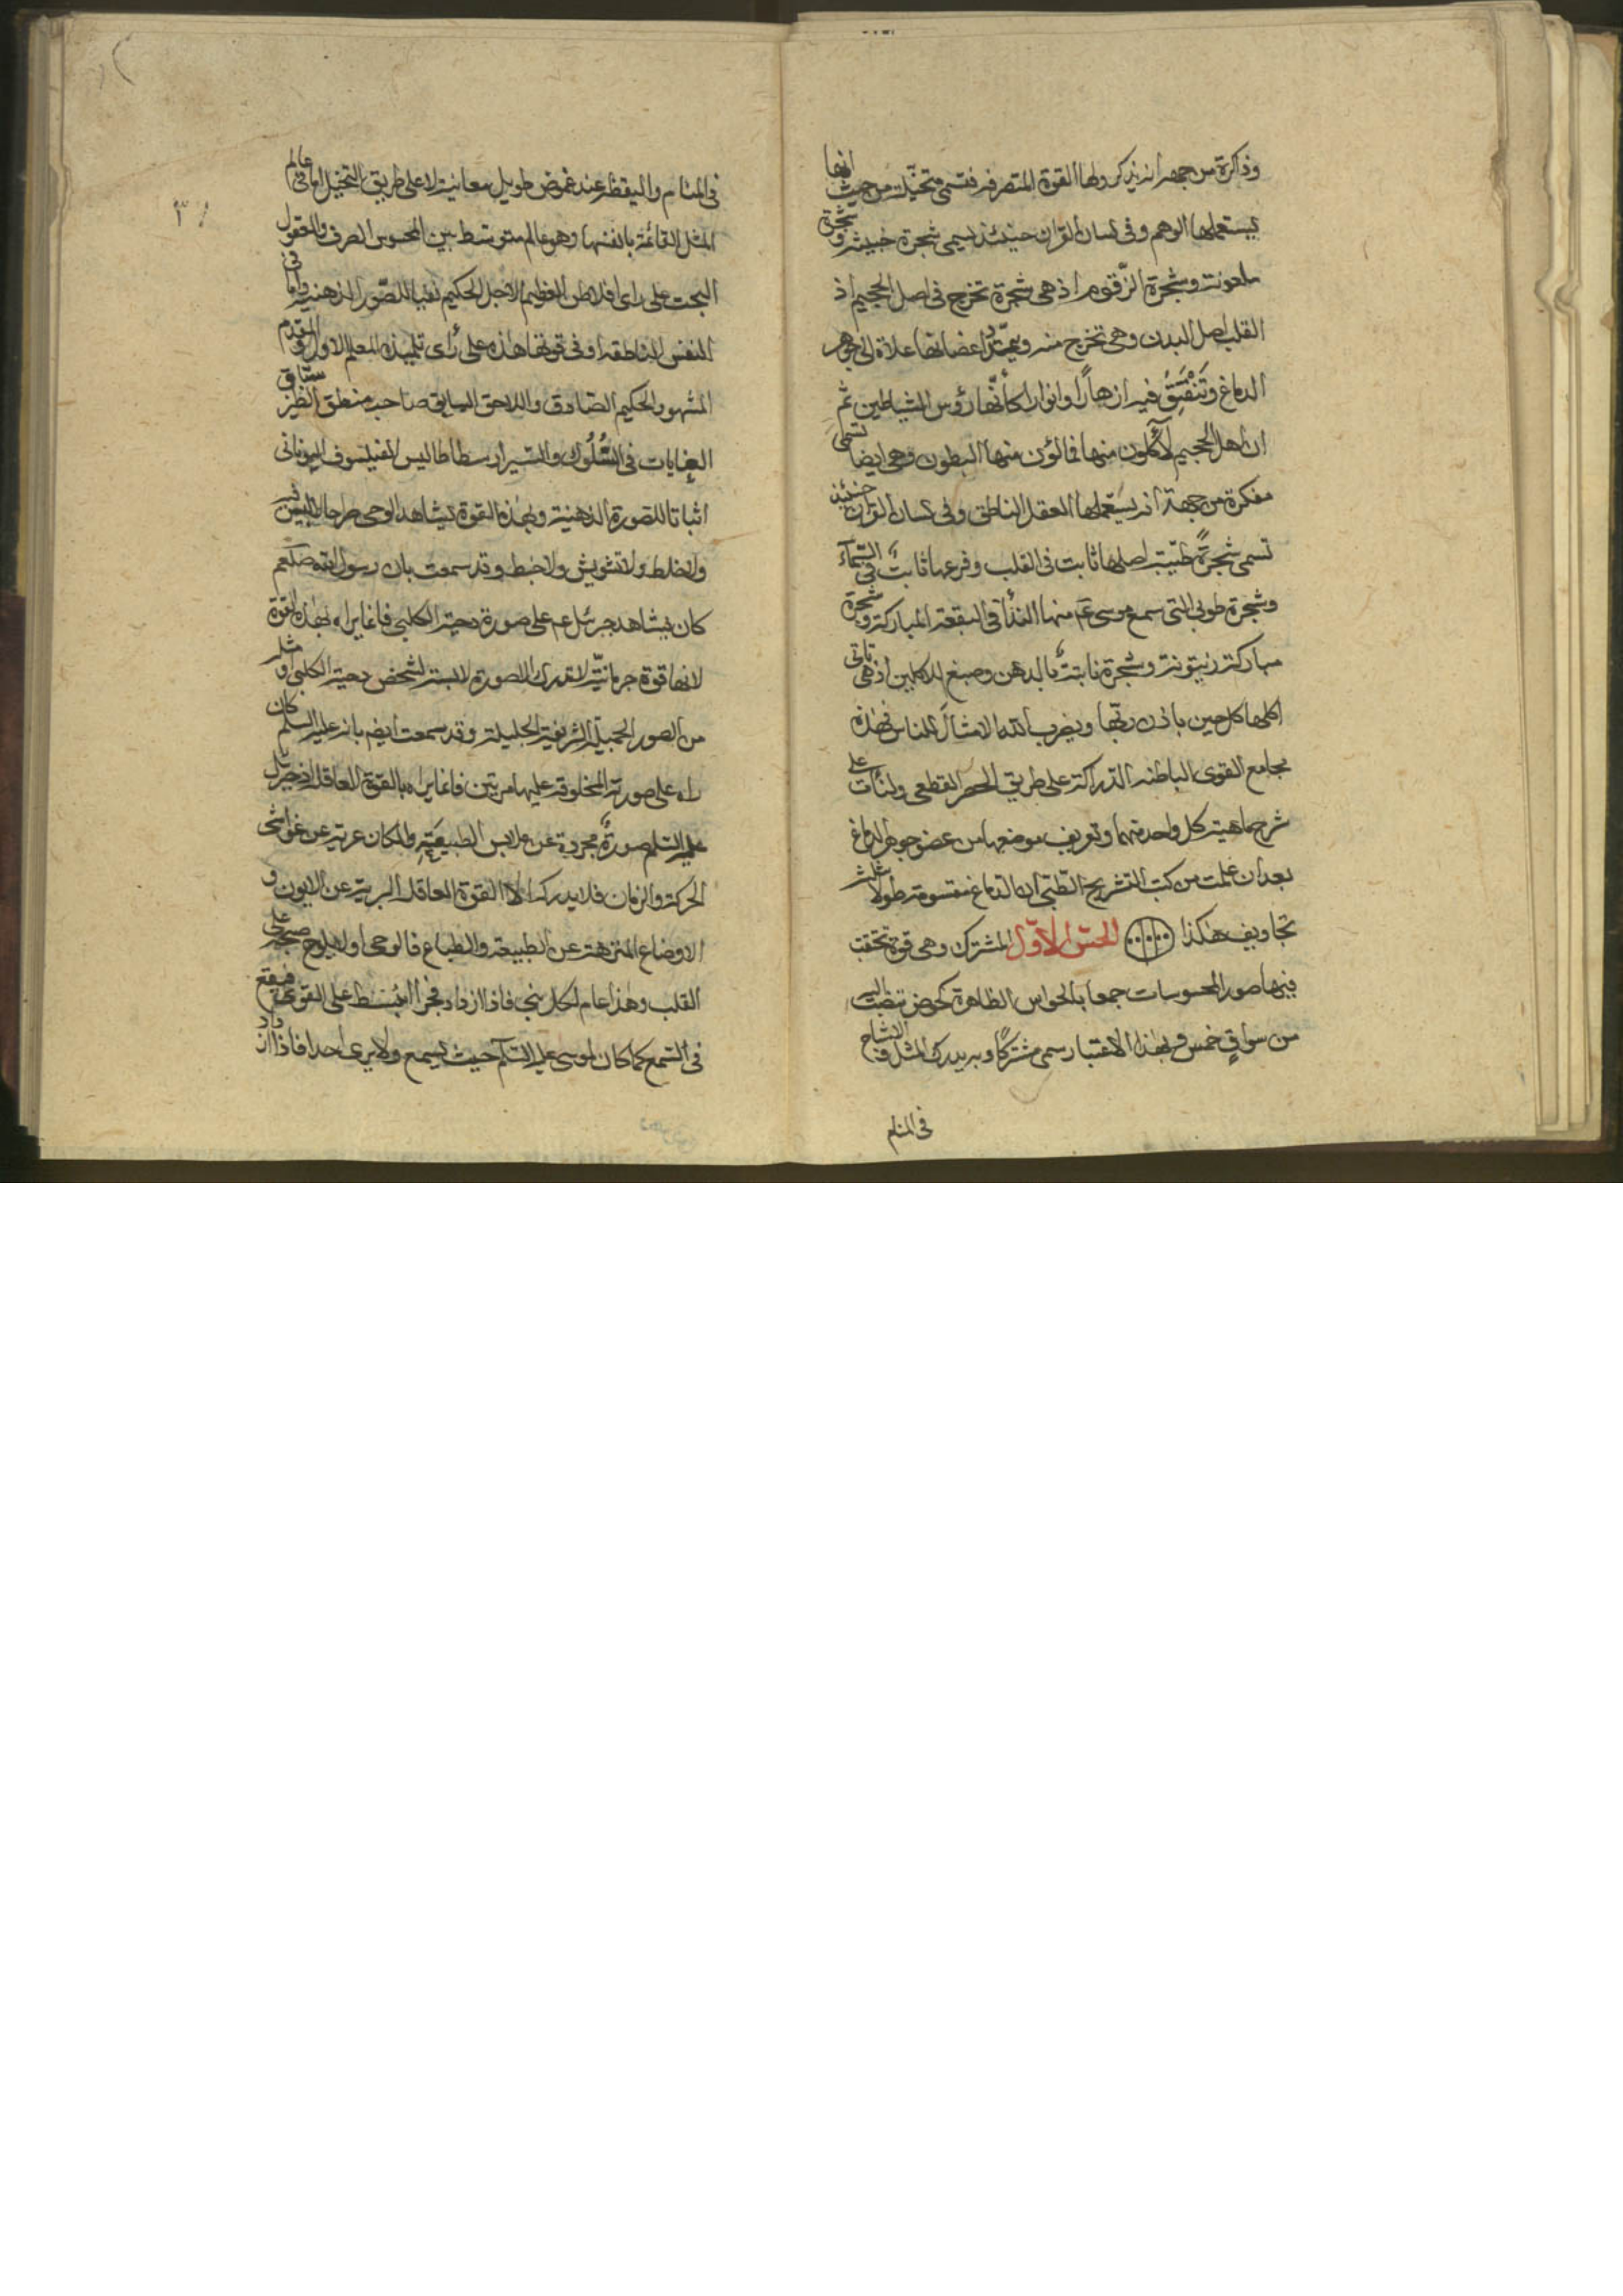 وذاكرة من جهة انه يذكر ولها القوة المتصرفة فتسمى متخيلة من حيث انها
يستعملها الوهم وفى لسان القرآن حينئذ تسمى شجرة خبيثة وشجرة
ملعونة وشجرة الزّقوم اذ هى شجرة تخرج فى اصل الجحيم اذ
القلب اصل البدن وهى تخرج منه اغضانها علاة الى جوهر
الدماغ وتنفتق فيه ازهارًا وانوارا كأنّها رؤس الشياطين ثم
ان اهل الجحيم لآكلون منها فمالؤن منها البطون وهى ايضا تسمى
مفكرة من جهة انه يستعملها العقل الناطق وفى لسان القرآن حينئذ
تسمى شجرةً طيّبة اصلها ثابت فى القلب وفرعها ثابتٌ فى السّمآء
وشجرة طوبى التى سمع موسى عم منها الندأ فى البقعة المباركة وشجرة
مباركة زيتونة وشجرة نابتةٌ بالدهن وصبغ للاكلين اذ هى تاتى
اكلها كل حين باذن ربّها ويضرب الله الامثالَ للناس فهذه
مجامع القوى الباطنه الدّراكة على طريق الحصر القطعى ولنأت على
شرح ماهية كل واحدة منها وتعريف موضعها من عضو جوهر الدماغ
بعد ان علمت من كتب التشريح الطّبى ان الدماغ مقسومة طولا ثلثة
تجاويف هكذا الحسّ الاوّل المشترك وهى قوة تحققت
فيها صور المحسوسات جمعا بالحواس الظاهرة كحوض تنصبّ اليه
من سواقٍ خمس وبهذا الاعتبار سمى مشتركًا وبه يدرك المثل والاشباح
فى المنام
٣
فى المنام واليقظة عند غموض طويل معاينة لا على طريق التخيّل اما فى عالم
المثل القائمة بانفسها وهو عالم متوسّط بين المحسوس الصرف والمعقول
البحت على راى افلاطن العظيم الاجل الحكيم نفيا للصّور الذهنية واما فى
النفس الناطقة او فى قوتها هذه على رأى تلميذه المعلم الاول والمقدم
المشهور الحكيم الصّادق واللاحق السابق صاحب منطق الطير سبّاق
الغايات فى السُّلوك والسّير ارسطاطاليس الفيلسوف اليونانى
اثباتا للصورة الذهنية وبهذه القوة يشاهد الوحى صراحا لا لبس فيه
ولا خلط ولا تشويش ولا خبط وقد سمعت بان رسول الله صلعم
كان يشاهد جبرئيل عم على صورة دحية الكلبى فانما يراه بهذه القوة
لانها قوة جرمانيّة لا تدرك الا صورة لابسة لشخص دحية الكلبى او مثله
من الصور الجميلة الشريفة الجليلة وقد سمعت ايضم بانه عليه السلم كان
راه على صورته المخلوقة عليها مرتين فانما يراه بالقوة العاقلة اذ جبرئيل
عليه السّلم صورةٌ مجردة عن ملابس الطبيعية والمكان عرية عن غواشى
الحركة والزمان فلا يدركه الا القوة العاقلة البرية عن الايون و
الاوضاع المنزهة عن الطبيعة والطباع فالوحى اولا يلوح صبحه على
القلب وهذا عام لكل نبى فاذا ازداد فجرا انبسط على القوى فيقع
فى السّمع كما كان لموسى عليه السّلم حيث يسمع ولا يرى احدا فاذا ازداد